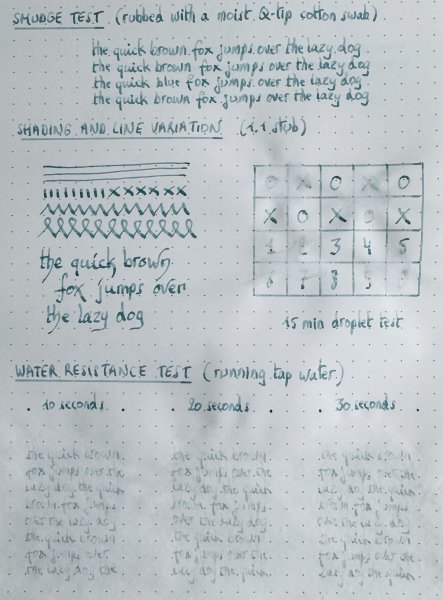 SMUDGE TEST (rubbed with a moist Q-tip cotton swab)
the quick brown fox jumps over the lazy dog
the quick brown fox jumps over the lazy dog
the quick blue fox jumps over the lazy dog
the quick brown fox jumps over the lazy dog
SHADING AND LINE VARIATION (1.1 stub)
the quick brown
fox jumps over
the lazy dog
O X O X O
X O X O X
1 2 3 4 5
6 7 8 9
15 min droplet test
WATER RESISTANCE TEST (running tap water)
10 seconds
20 seconds
30 seconds
the quick brown
fox jumps over the
lazy dog the quick
brown fox jumps
over the lazy dog
the quick brown
fox jumps over
the lazy dog the
the quick brown
fox jumps over the
lazy dog the quick
brown fox jumps
over the lazy dog
the quick brown
fox jumps over the
lazy dog the quick
the quick brown
fox jumps over the
lazy dog the quick
brown fox jumps
over the lazy dog
the quick brown
fox jumps over the
lazy dog the quick